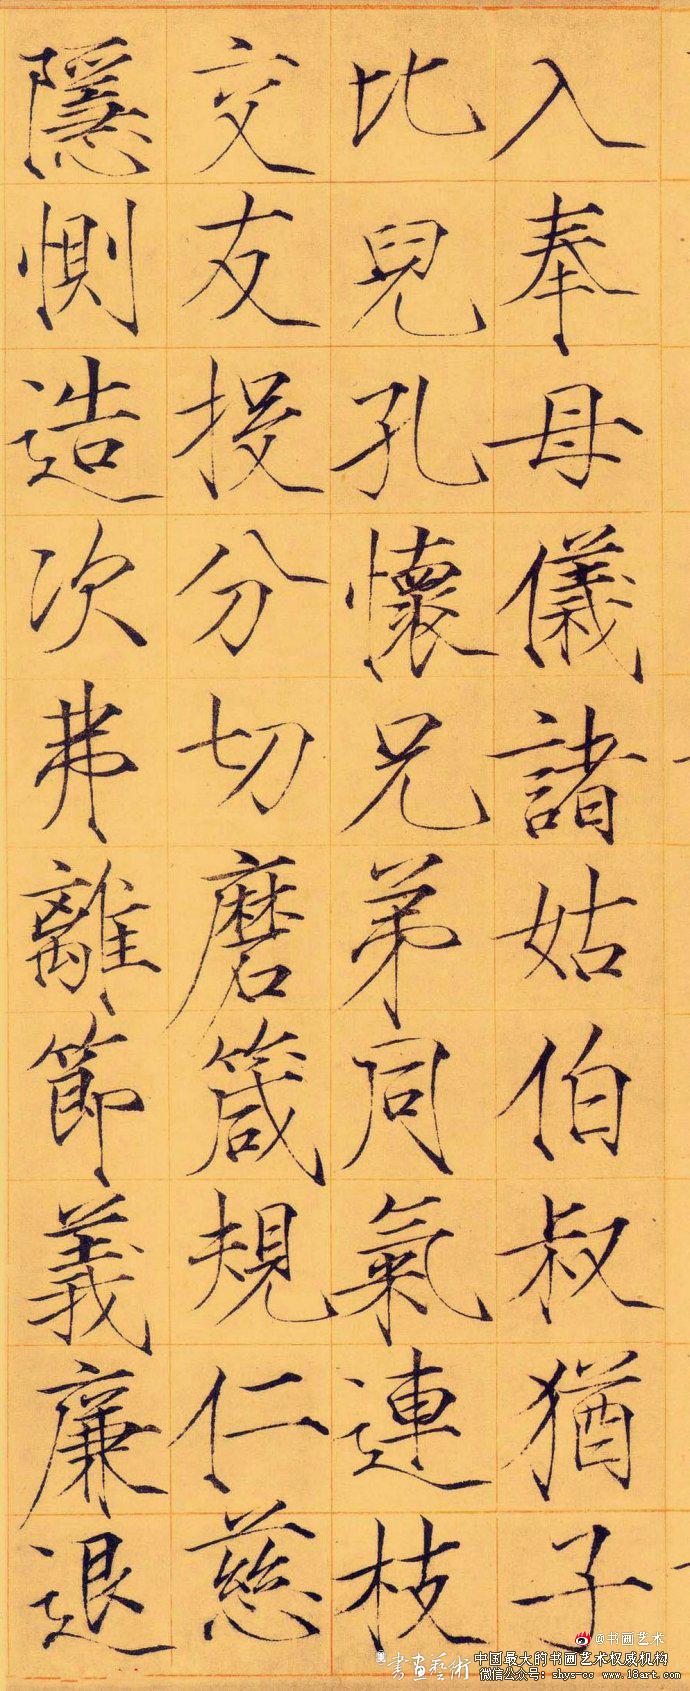 入奉母儀諸姑伯叔猶子
比兒孔懷兄弟同氣連枝
交友投分切磨箴規仁慈
隱惻造次弗離節義廉退
@书画艺术
書画藝術
中国最大的书画艺术权威机构
微信公众号：shys-cc www.18art.com